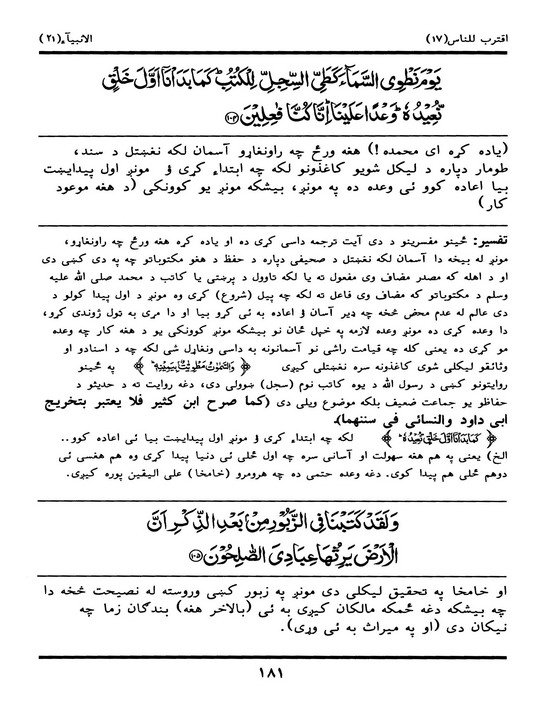 اقترب للناس(۱۷)
الانبیآء(۲۱)
يَوْمَ نَطْوِي السَّمَآءَ كَطَيِّ السِّجِلِّ لِلْكُتُبِ كَمَا بَدَاْنَآ اَوَّلَ خَلْقٍ
نُّعِيْدُهٗ وَعْدًا عَلَيْنَا اِنَّا كُنَّا فٰعِلِيْنَ ۱۰۴
(یاده کړه ای محمده!) هغه ورځ چه راونغاړو آسمان لکه نغښتل د سند،
طومار دپاره د لیکل شویو کاغذونو لکه چه ابتداء کړی ؤ مونږ اول پیدایښت
بیا اعاده کوو ئی وعده ده په مونږ، بیشکه مونږ یو کوونکی (د هغه موعود
کار)
تفسیر: ځینو مفسرینو د دی آیت ترجمه داسی کړی ده او یاده کړه هغه ورځ چه راونغاړو،
مونږ له بیخه دا آسمان لکه نغښتل د صحیفی دپاره د حفظ د هغو مکتوباتو چه په دی کښی دی
او د اهله که مصدر مضاف وی مفعول ته یا لکه تاوول د پرښتی یا کاتب د محمد صلی الله علیه
وسلم د مکتوباتو که مضاف وی فاعل ته لکه چه پیل (شروع) کړی وه مونږ د اول پیدا کولو د
دی عالم له عدم محض څخه چه ډیر آسان ؤ اعاده به ئی کړو بیا او دا مړی به ټول ژوندی کړو،
دا وعده کړی ده مونږ وعده لازمه په خپل ځان نو بیشکه مونږ کوونکی یو د هغه کار چه وعده
مو کړی ده یعنی کله چه قیامت راشی نو آسمانونه به داسی ونغاړل شی لکه چه د اسنادو او
وثائقو لیکلی شوی کاغذونه سره نغښتلی کیږی ﴿وَالسَّمٰوٰتُ مَطْوِيّٰتٌۢ بِيَمِيْنِهٖ﴾ په ځینو
روایتونو کښی د رسول الله د یوه کاتب نوم (سجل) ښوولی دی، دغه روایت ته د حدیثو د
حفاظو یو جماعت ضعیف بلکه موضوع ویلی دی (كما صرح ابن كثير فلا يعتبر بتخريج
ابی داود والنسائی فی سننهما).
﴿كَمَا بَدَاْنَآ اَوَّلَ خَلْقٍ نُّعِيْدُهٗ﴾ لکه چه ابتداء کړی ؤ مونږ اول پیدایښت بیا ئی اعاده کوو..
الخ) یعنی په هم هغه سهولت او آسانی سره چه اول ځلی ئی دنیا پیدا کړی وه هم هغسی ئی
دوهم ځلی هم پیدا کوی. دغه وعده حتمی ده چه هرومرو (خامخا) علی الیقین پوره کیږی.
وَلَقَدْ كَتَبْنَا فِي الزَّبُوْرِ مِنْۢ بَعْدِ الذِّكْرِ اَنَّ
الْاَرْضَ يَرِثُهَا عِبَادِيَ الصّٰلِحُوْنَ ۱۰۵
او خامخا په تحقیق لیکلی دی مونږ په زبور کښی وروسته له نصیحت څخه دا
چه بیشکه دغه ځمکه مالکان کیږی به ئی (بالاخر هغه) بندګان زما چه
نیکان دی (او په میراث به ئی وړی).
۱۸۱